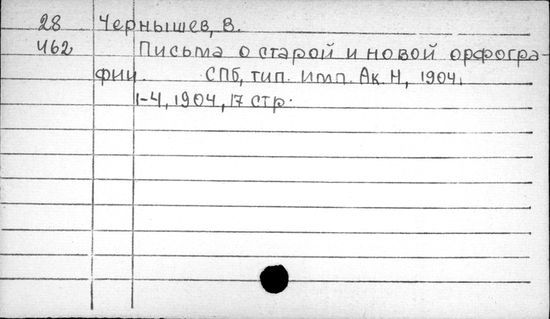 28 Чернышев, В.
462 Письма о старой и новой орфогра-
фии. СПб, тип. Имп. Ак. Н, 1904.
1-4, 1904, 17 стр.